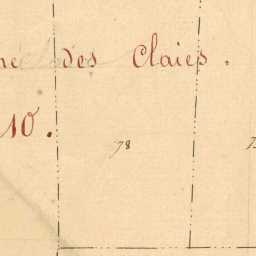 des Claies.
10.
78